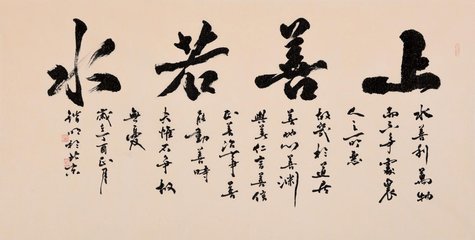 上善若水
水善利萬物
而不爭處眾
人之所惡
故幾於道居
善地心善淵
與善仁言善信
正善治事善
能動善時
夫惟不爭故
無憂
歲酉正月
於北京